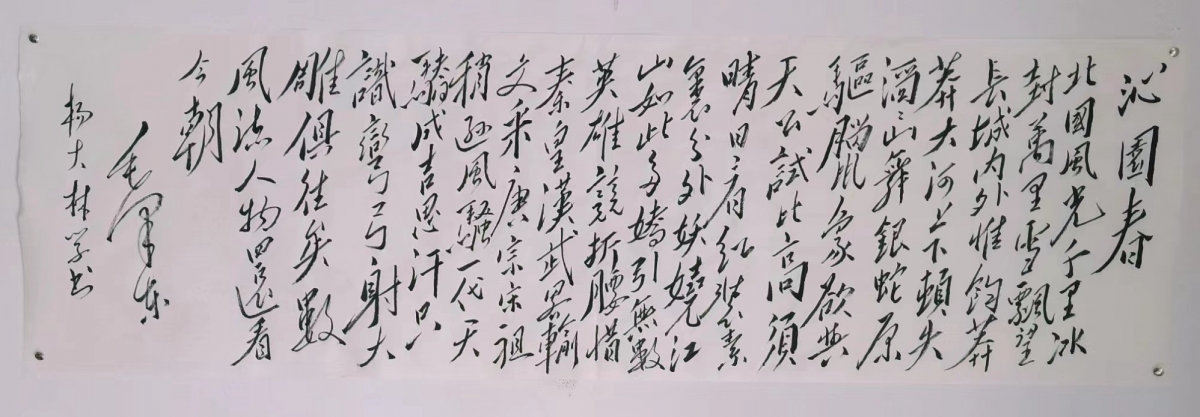 沁園春
北國風光千里冰
封萬里雪飄望
長城內外惟餘莽
莽大河上下頓失
滔滔山舞銀蛇原
驅臘象欲與
天公試比高須
晴日看紅裝素
裹分外妖嬈江
山如此多嬌引無數
英雄競折腰惜
秦皇漢武略輸
文采唐宗宋祖
稍遜風騷一代天
驕成吉思汗只
識彎弓射大
雕俱往矣數
風流人物還看
今朝
毛澤東
楊大林學書